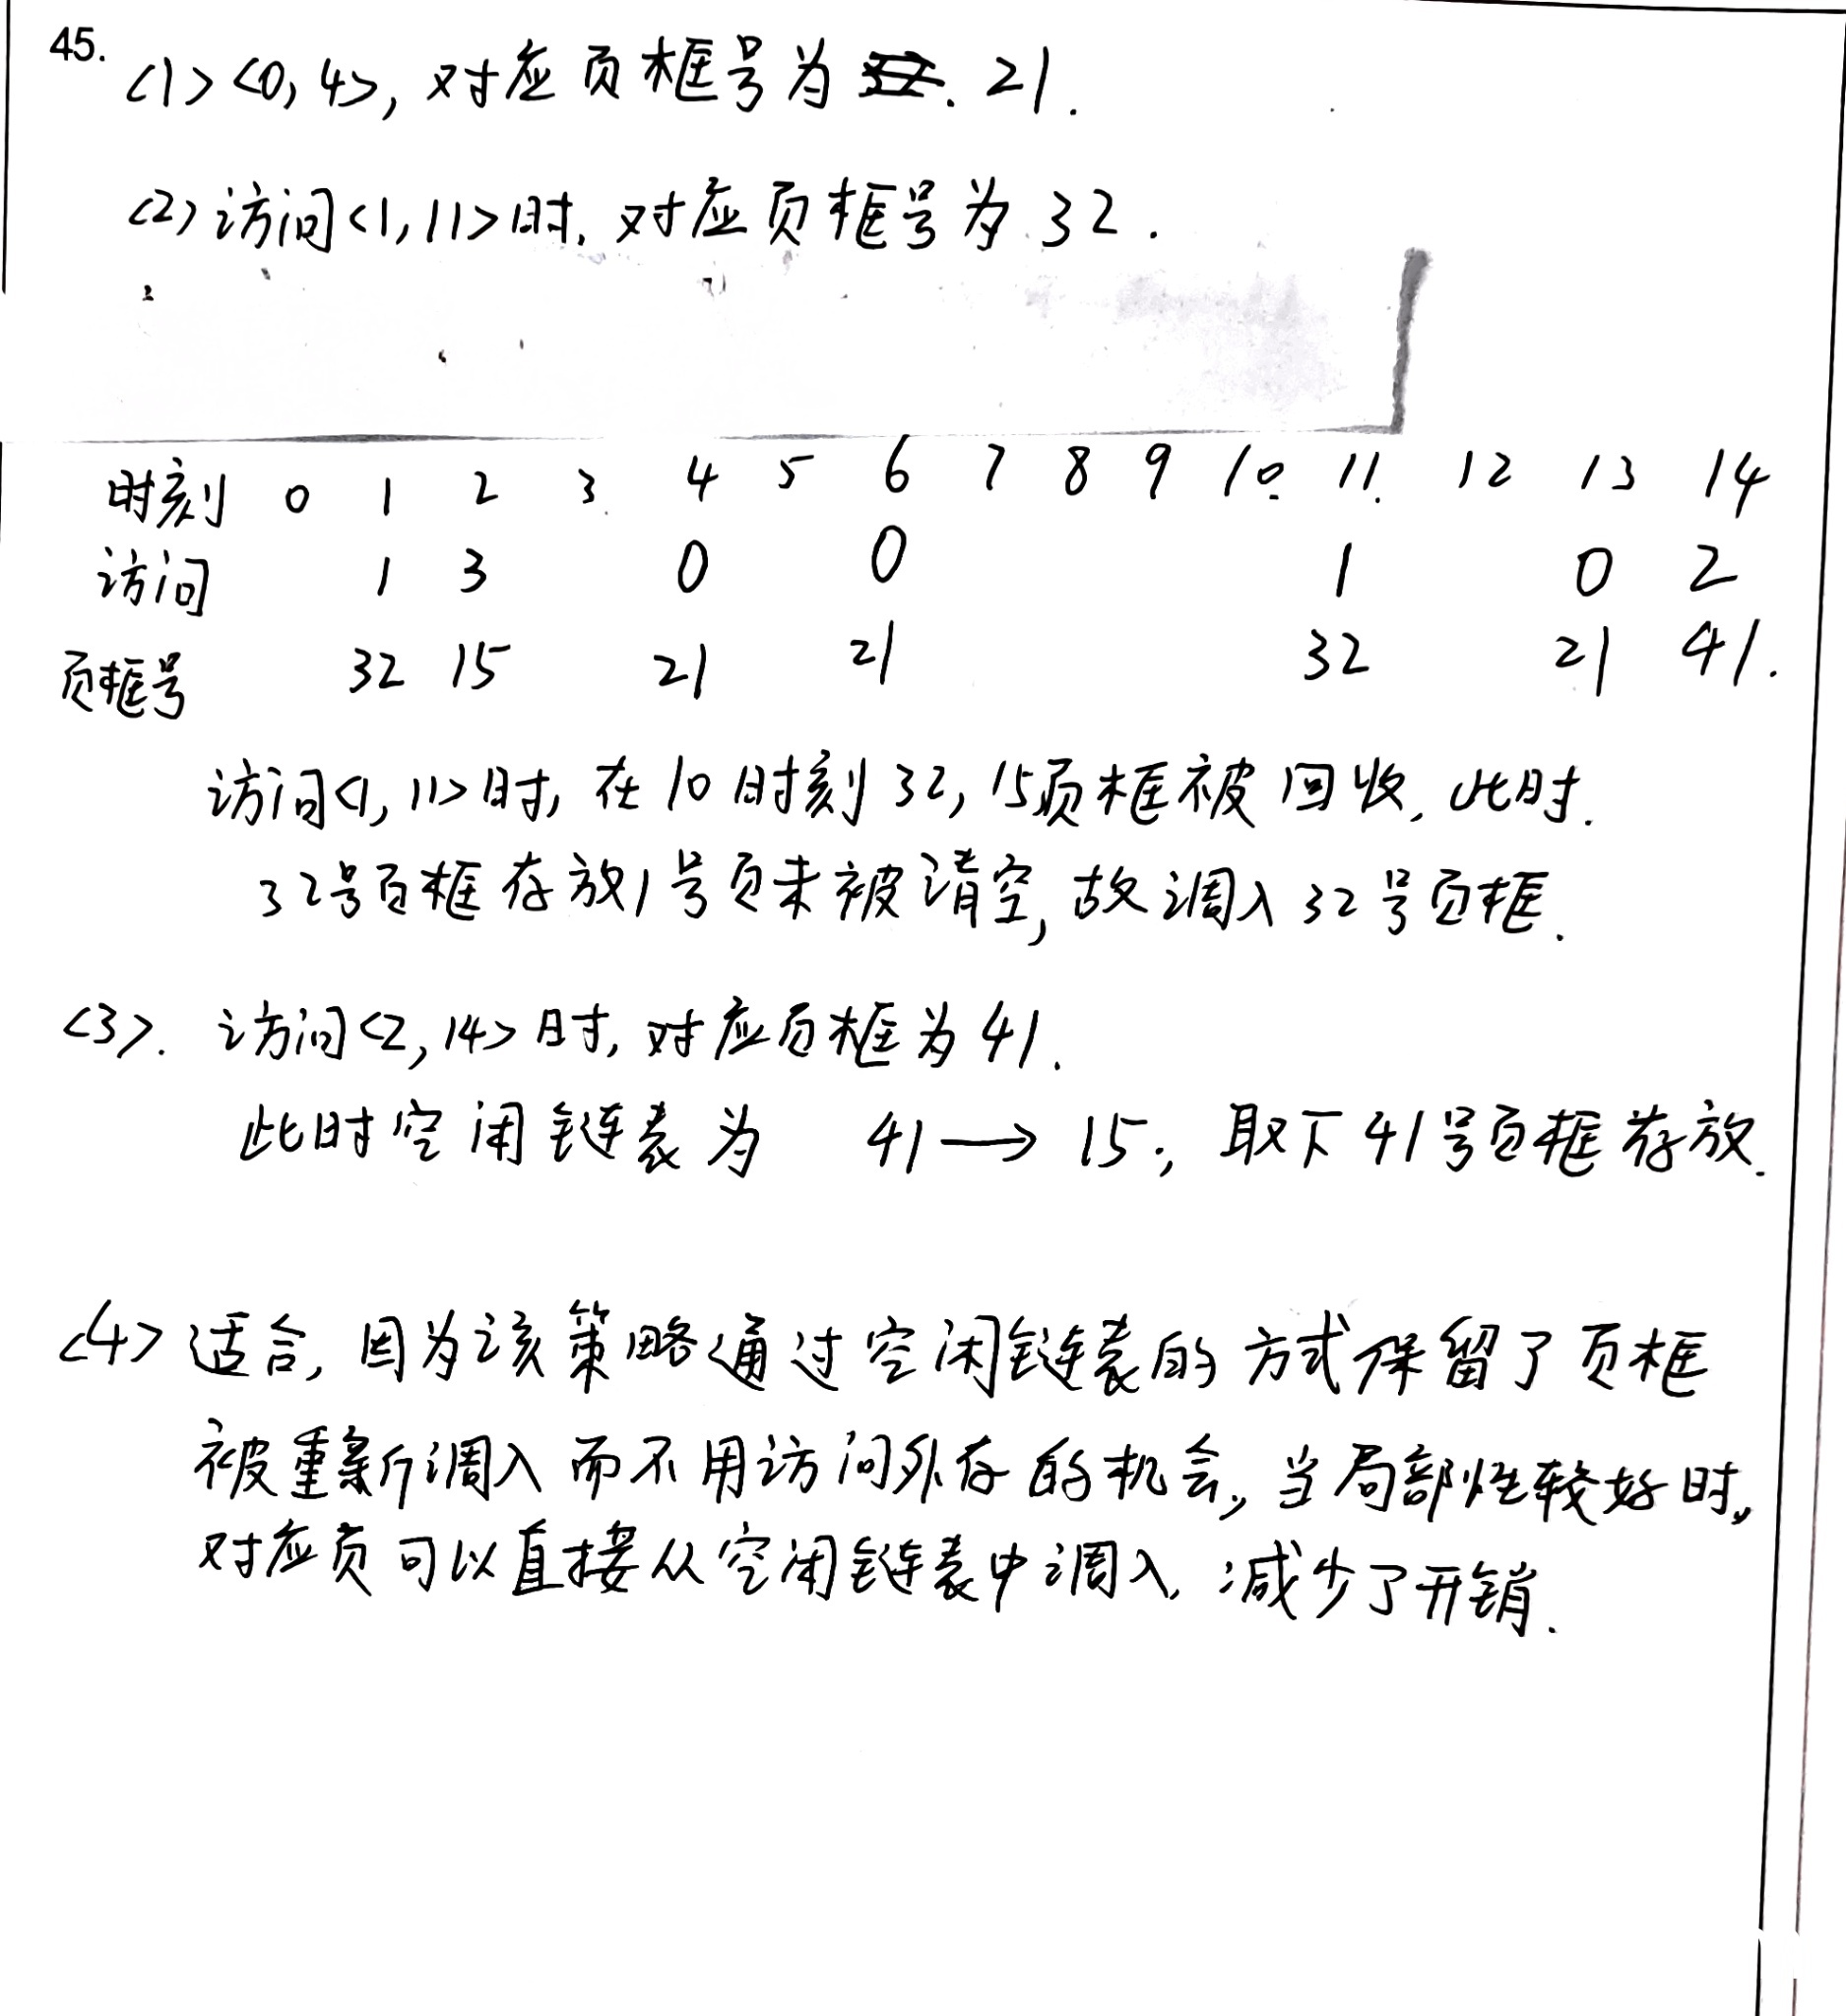 45.
<1> <0, 4>, 对应页框号为 21.
<2> 访问<1, 11>时, 对应页框号为 32.
时刻 0 1 2 3 4 5 6 7 8 9 10 11 12 13 14
访问 1 3 0 0 1 0 2
页框号 32 15 21 21 32 21 41.
访问<1, 11>时, 在10时刻32, 15页框被回收, 此时.
32号页框存放1号页未被清空, 故调入32号页框.
<3>. 访问<2, 14>时, 对应页框为41.
此时空闲链表为 41 → 15, 取下41号页框存放.
<4> 适合, 因为该策略通过空闲链表的方式保留了页框
被重新调入而不用访问外存的机会, 当局部性较好时,
对应页可以直接从空闲链表中调入, 减少了开销.